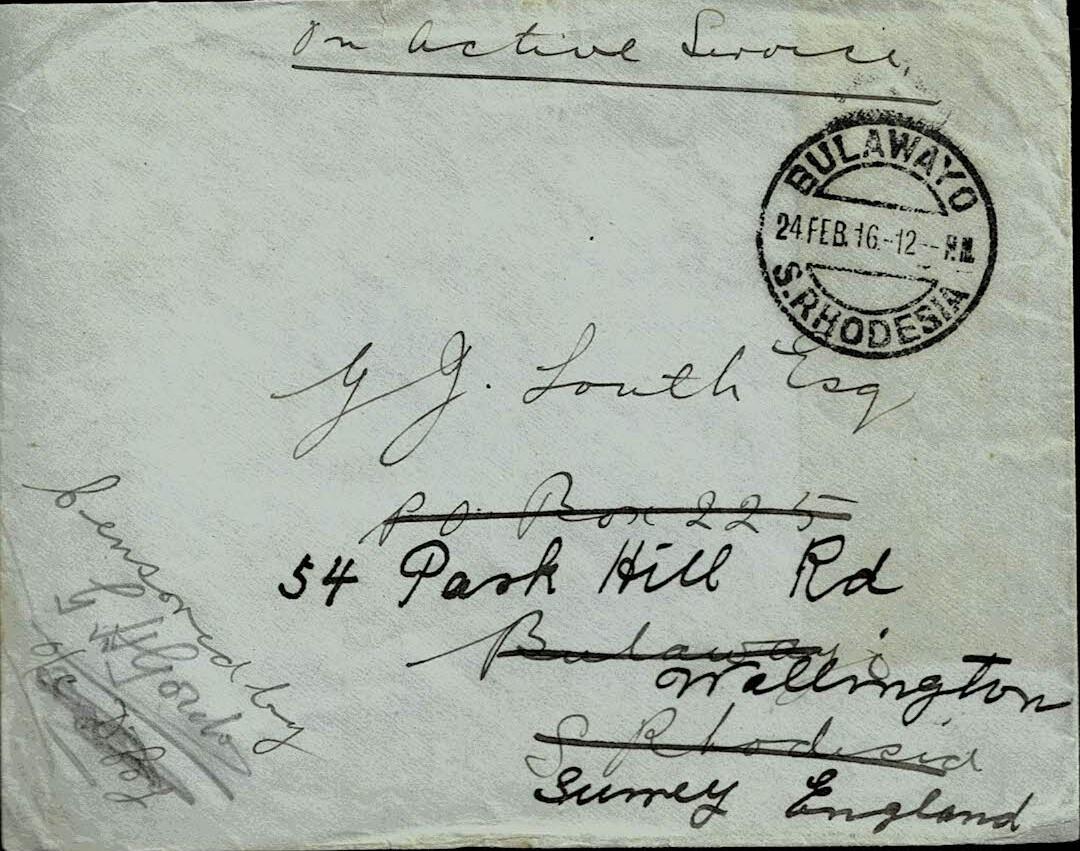 On Active Service.
BULAWAYO
24 FEB. 16.-12 -- P.M.
S. RHODESIA
G J. Louth Esq
P O. Box 225
54 Park Hill Rd
Bulawayo
Wallington
S Rhodesia
Surrey England
Censored by